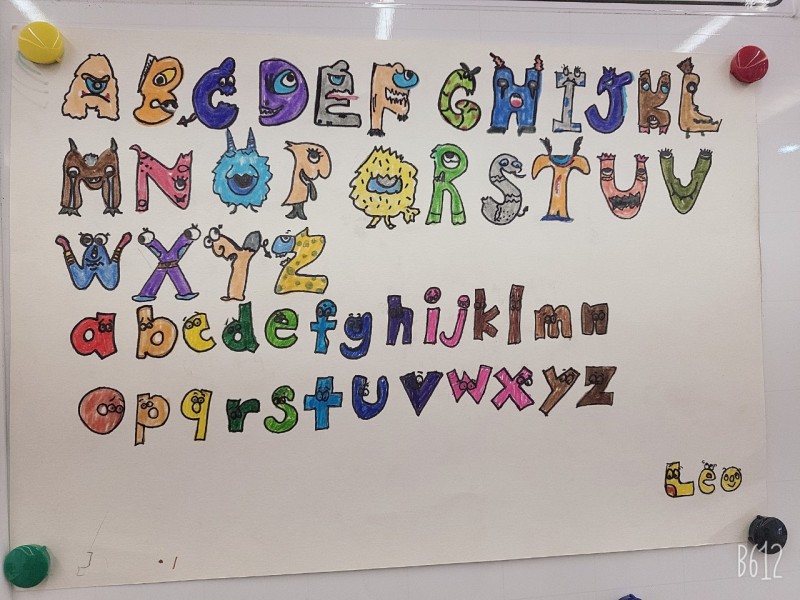 A B C D E F G H I J K L
M N O P Q R S T U V
W X Y Z
a b c d e f g h i j k l m n
o p q r s t u v w x y z
Leo
B612